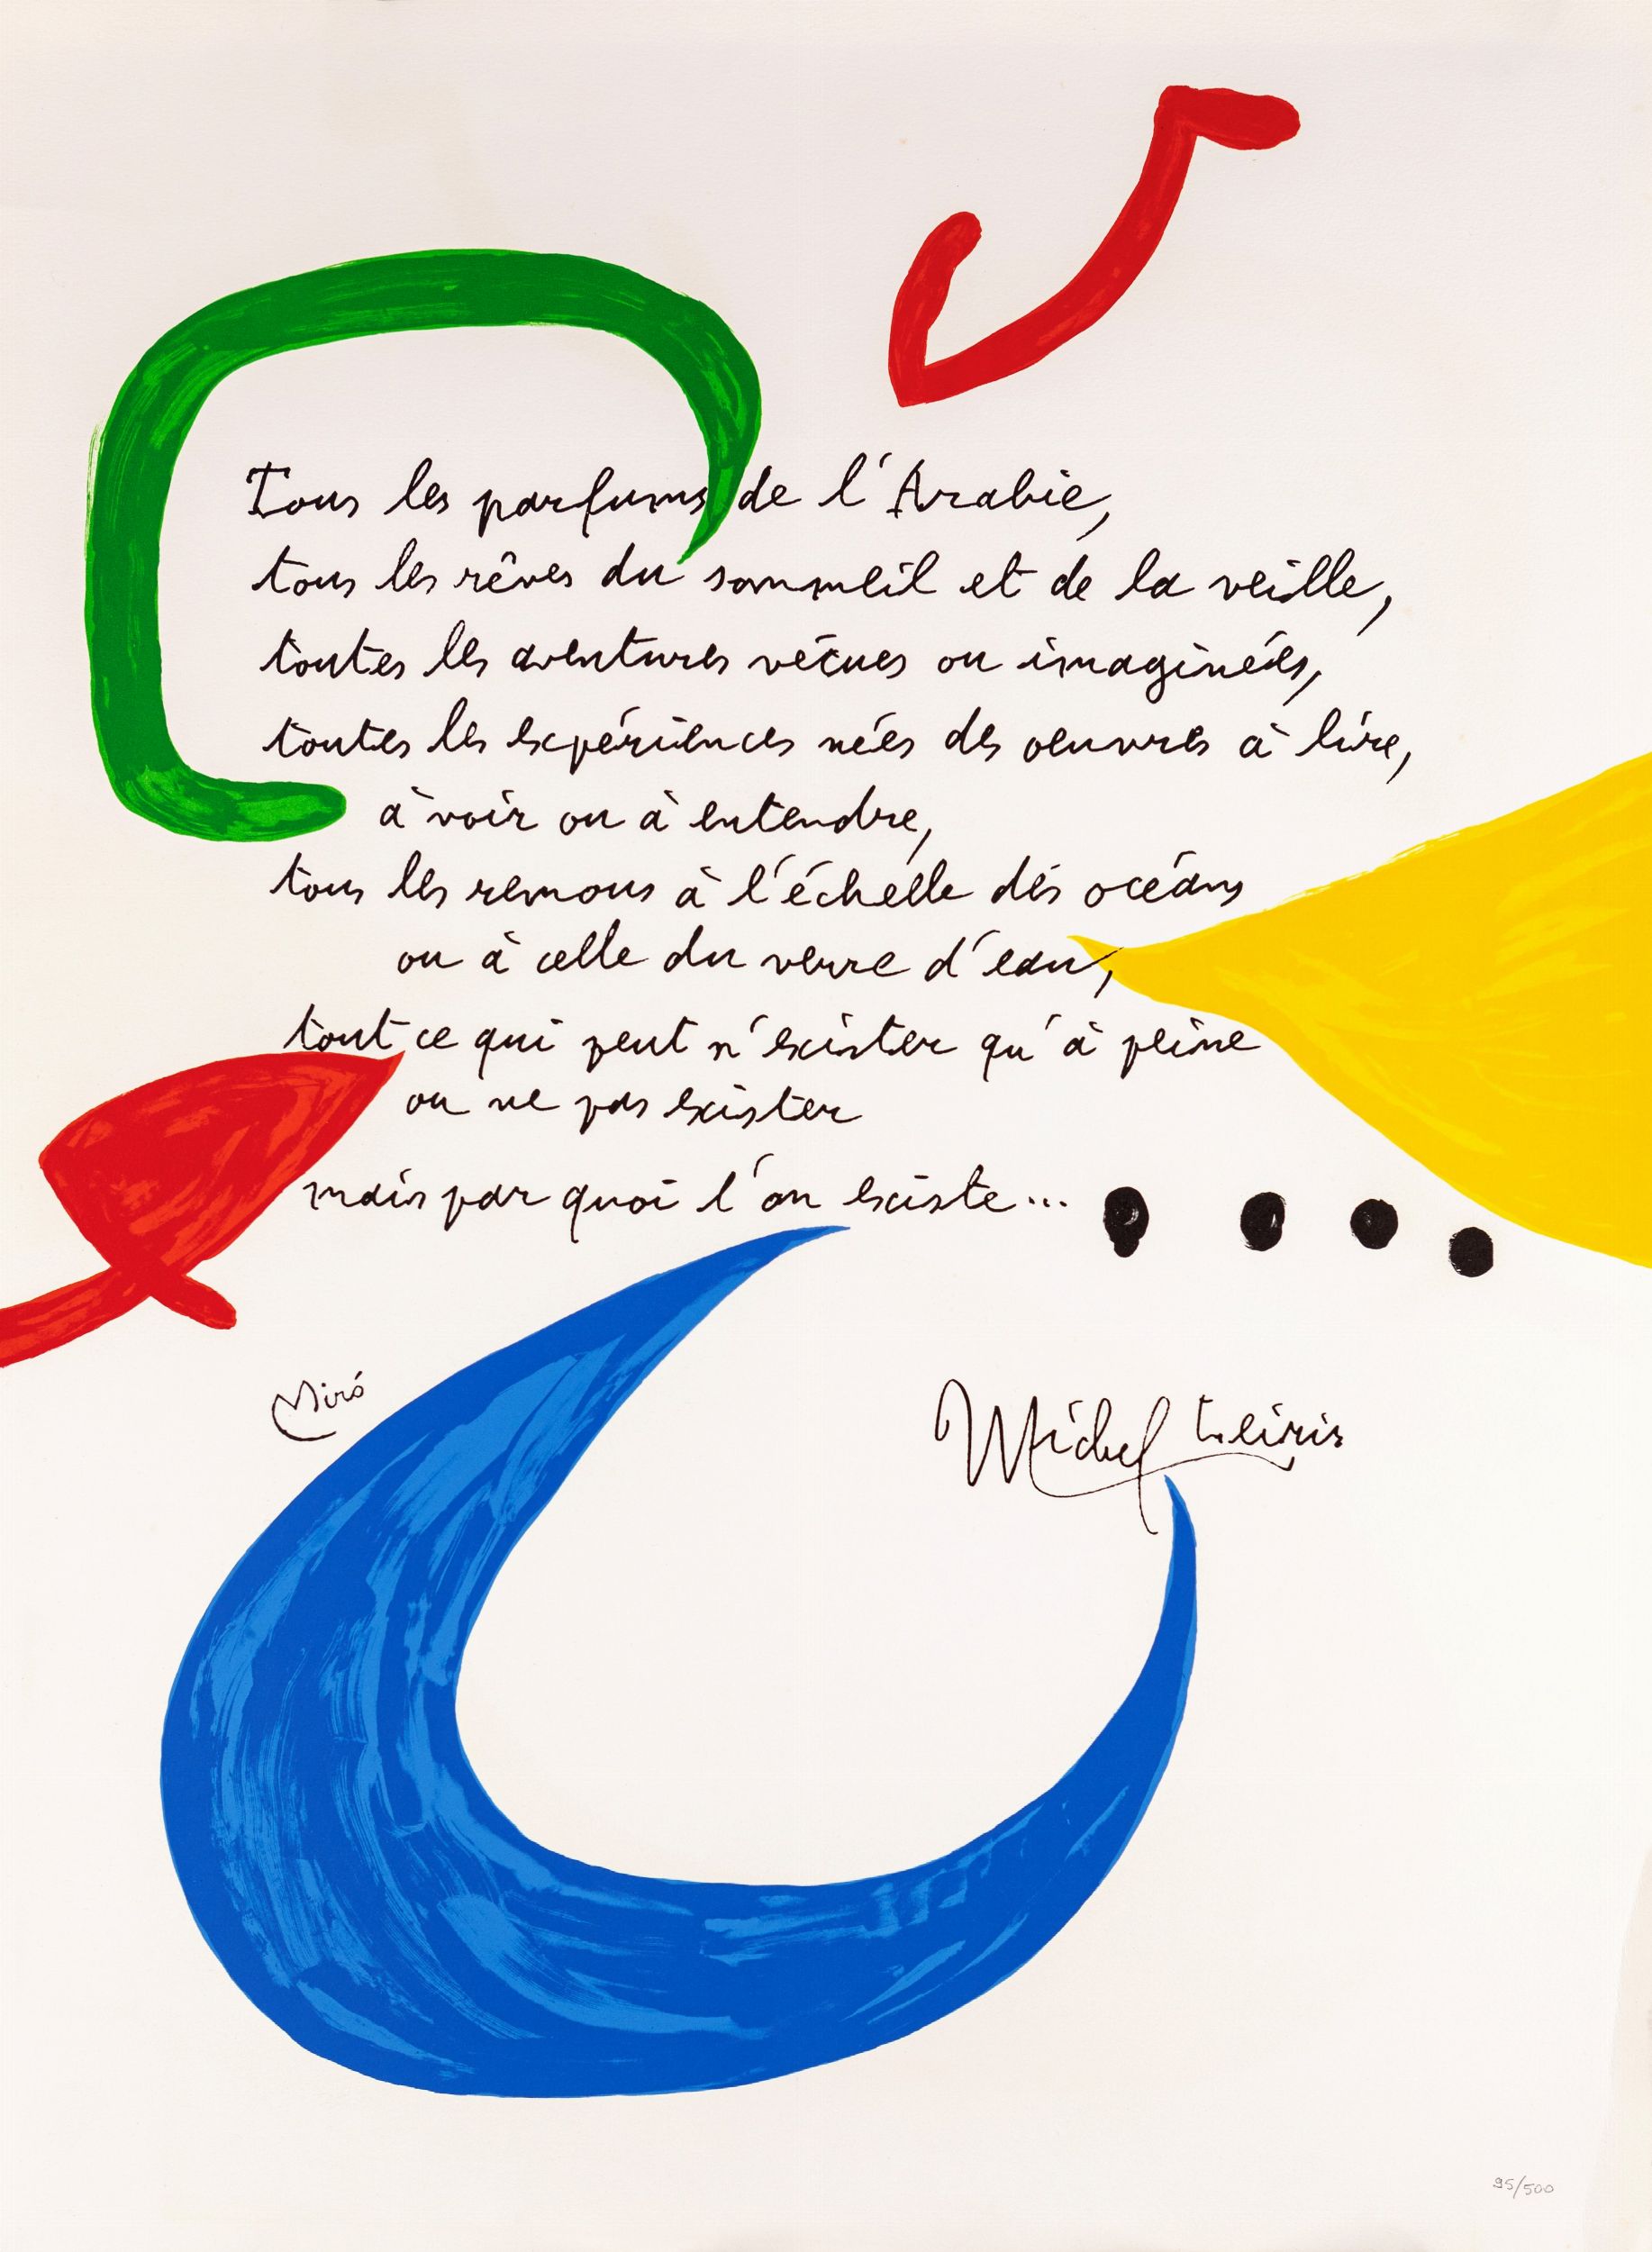 Tous les parfums de l'Arabie,
tous les rêves du sommeil et de la veille,
toutes les aventures vécues ou imaginées,
toutes les expériences nées des oeuvres à lire,
à voir ou à entendre,
tous les remous à l'échelle des océans
ou à celle du verre d'eau,
tout ce qui peut n'exister qu'à peine
ou ne pas exister
mais par quoi l'on existe...
Miró
Michel Leiris
95/500